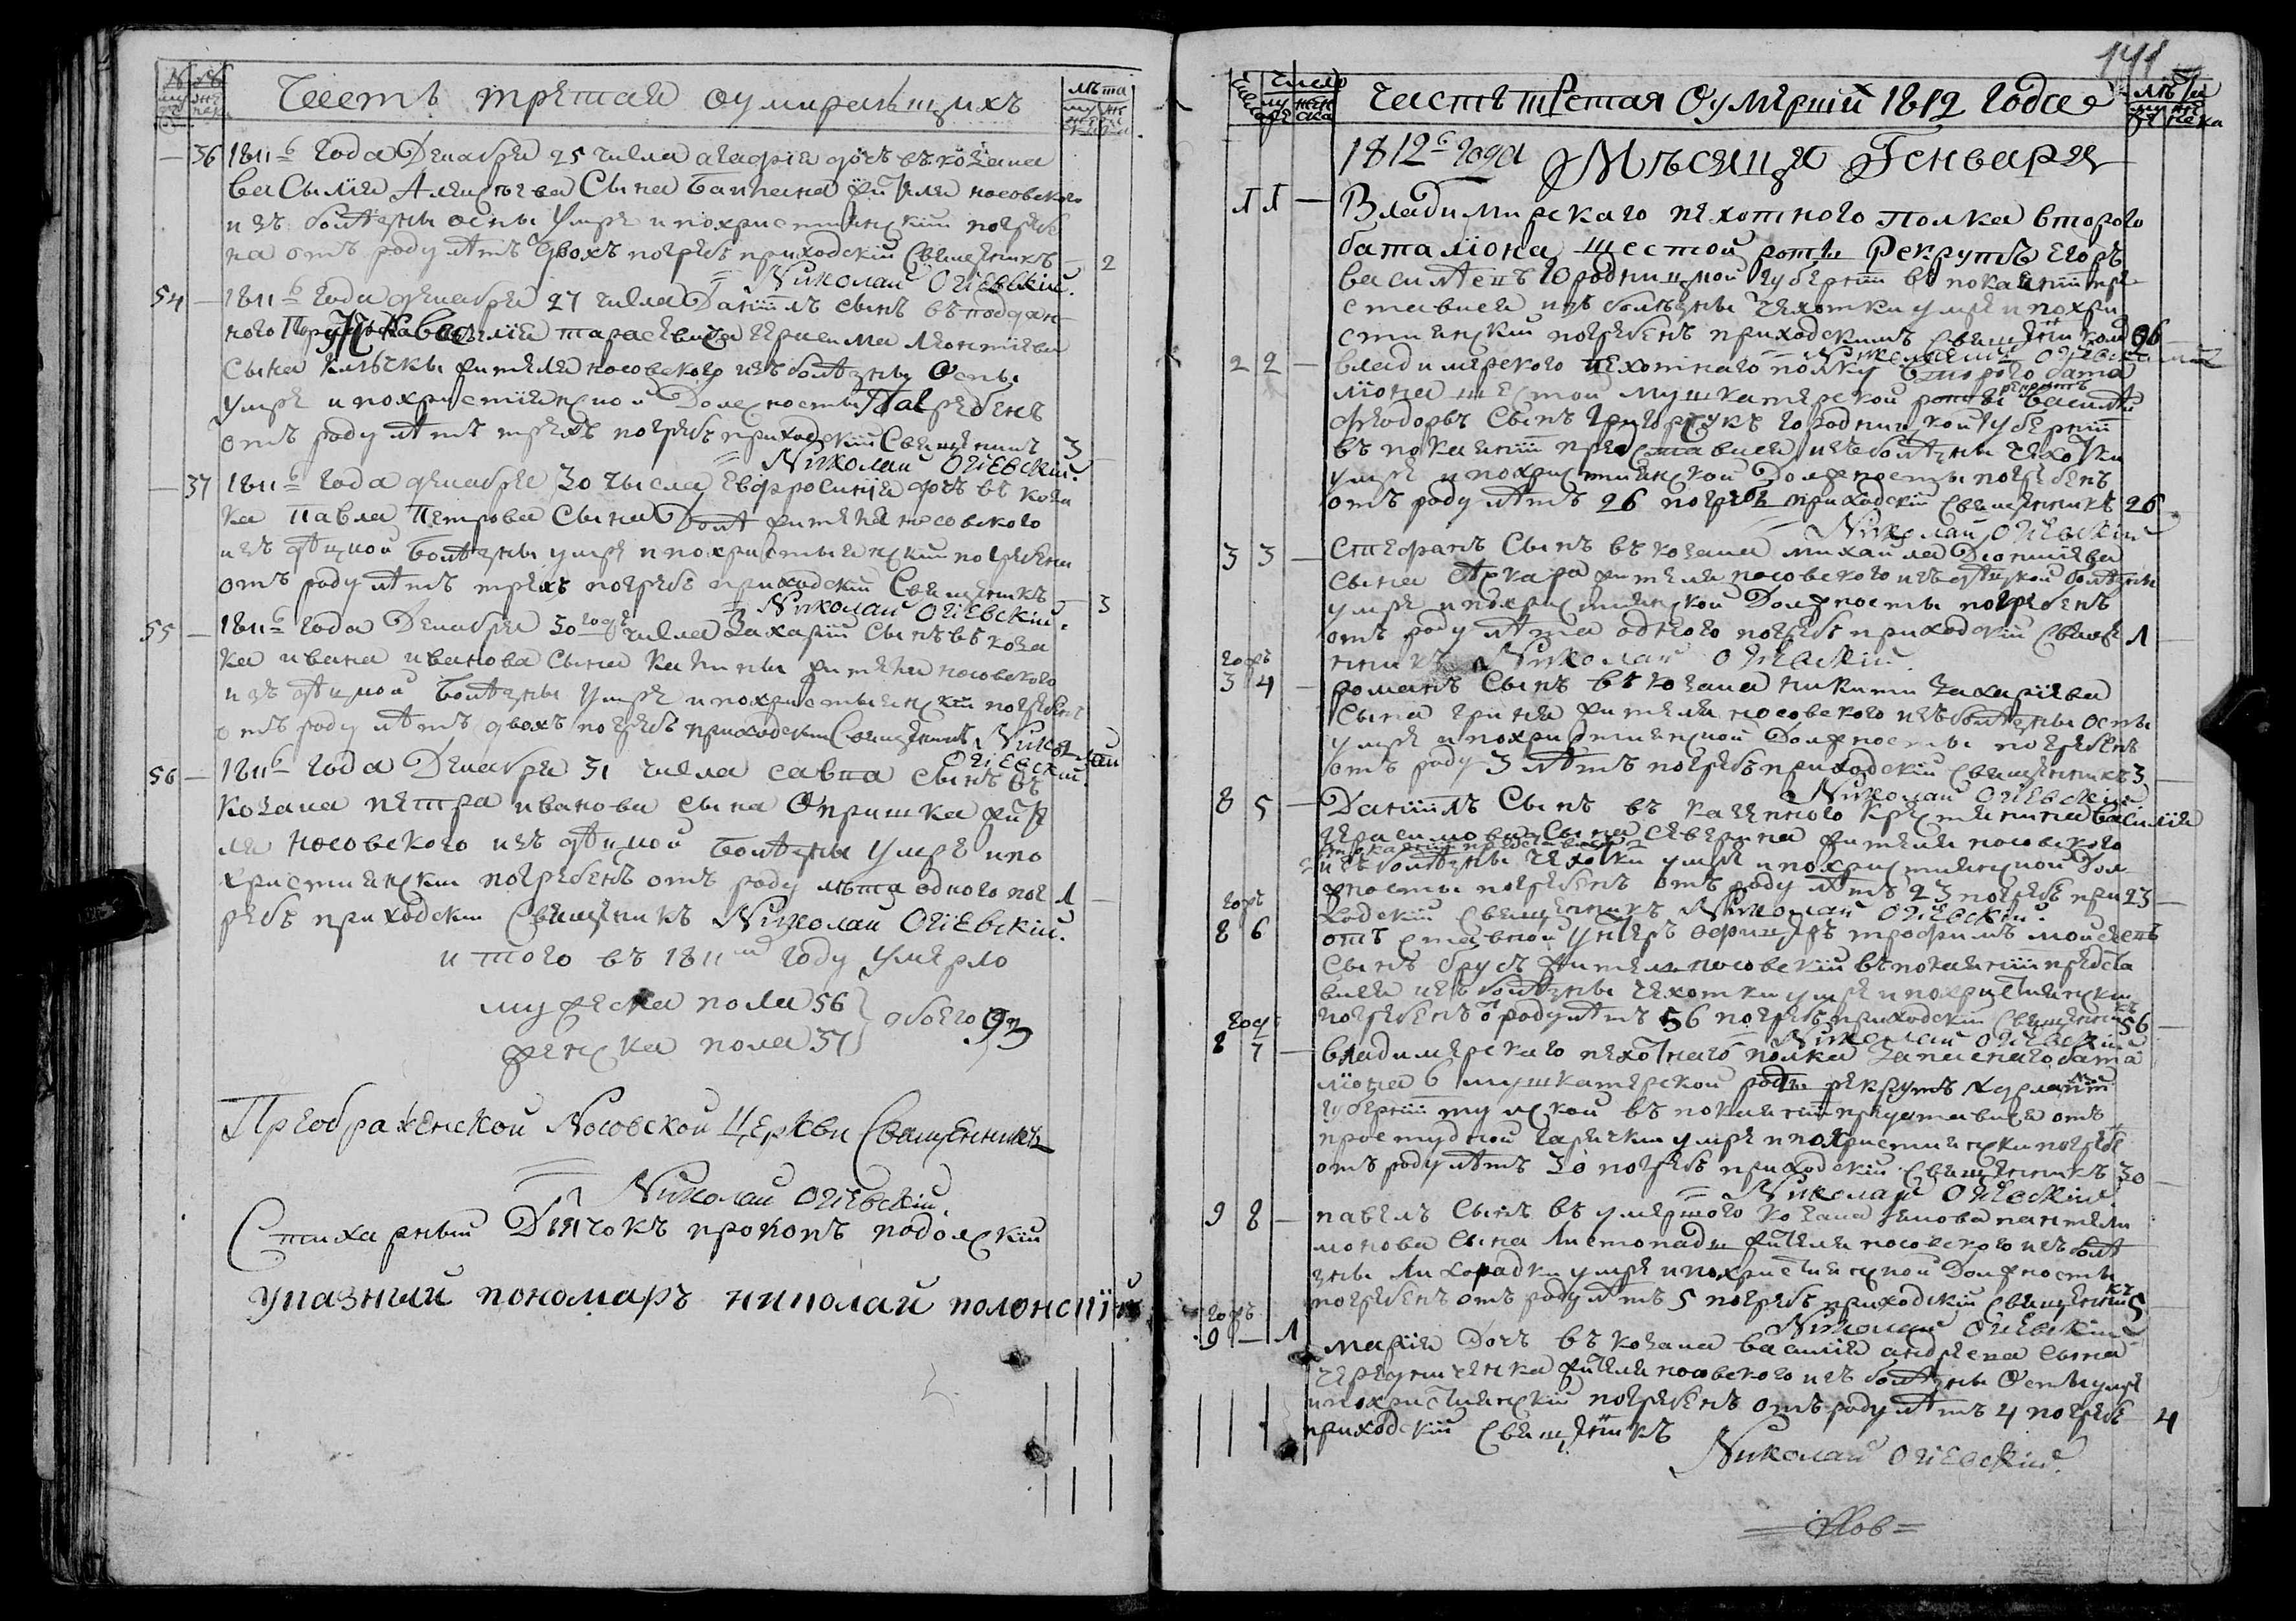 № №
Часть третая оумиральщихъ
лѣта
36 1811 года Декабря 25 числа агафія дочь въ козака
василия сына жителя носовского
изъ болѣзни оспы умре и похристиянскии погребе
на отъ роду лѣтъ двохъ погребъ приходскій священникъ 2
Николай Огіевскій.
54 1811 года декабря 27 числа Даніилъ сынъ въ поддан
ного василия тарасевича герасима леонтіева
сына жителя носовского изъ болѣзни Оспы
умре и похристиянской Должности погребенъ
отъ роду лѣтъ трехъ погребъ приходскій священникъ 3
Николай Огіевскій.
37 1811 года декабря 30 числа евфросинія дочь въ коза
ка Павла Петрова сына жителя носовского
изъ дѣцкой болѣзни умре и похристыянскии погребена
отъ роду лѣтъ трехъ погребъ приходскій Священникъ 3
Николай Огіевскій.
55 1811 года Декабря 30 числа Захарій Сынъ въ коза
ка ивана иванова сына жителя носовского
изъ дѣцкой болѣзни умре и похристыянскій погребенъ
отъ роду лѣтъ двохъ погребъ приходскій Священникъ Николай
Огіевскій.
56 1811 года Декабря 31 числа савва сынъ въ
козака петра иванова сына Опришка жите
ля носовского изъ дѣцкой болѣзни умре и по
християнскии погребенъ отъ роду лѣта одного пог 1
ребъ приходскій священникъ Николай Огіевскій.
и того въ 1811м году умерло
мужеска пола 56
обоего 93
женска пола 37
Преображенской Носовской Церкви Священникъ
Николай Огіевскій.
Стихарный Дячокъ прокопъ подолскій
указный пономаръ николай полонскій
141
Число
Часть третая Оумершихъ 1812 Года
лѣта
1812 года Мѣсяца Генваря
1 1 Владимирскаго пехотного полка второго
баталіона шестой роты Рекрутъ егоръ
василѣевъ Гродницкой губерніи въ покаяніи пре
ставися изъ болѣзни чехотки умре и похри
стиянскій погребенъ приходскимъ священникомъ 26
Николаемъ Огіевскимъ
2 2 владимерского пехотнаго полку второго бата
ліона шестой мушкатерской роты рекрутъ василѣй
Феодоръ Сынъ григорчукъ Городницкой губерніи
въ покаяніи преставися изъ болѣзни чехотки
умре и похристиянской Должности погребенъ
отъ роду лѣтъ 26 погребъ приходскій священникъ 26
Николай Огіевскій
3 3 Стефанъ Сынъ въ козака михаила Діонисіева
сына жителя носовского изъ дѣцкой болѣзни
умре и похристиянской Должности погребенъ
отъ роду лѣта одного погребъ приходскій свяще 1
нникъ Николай Огіевскій
3 4 романъ Сынъ въ козака никити Захаріева
сына жителя носовского изъ болѣзни оспы
умре и похристиянской Должности погребенъ
отъ роду 3 лѣтъ погребъ приходскій священникъ 3
Николай Огіевскій
8 5 Даніилъ Сынъ въ казенного крестянина василія
герасимова сына северина жителя носовского
въ покаяніи преставися
изъ болѣзни чехотки умре и похристиянской Дол
жности погребенъ отъ роду лѣтъ 23 погребъ при 23
ходскій священникъ Николай Огіевскій.
8 6 отъставной унтеръ офицеръ трофимъ моисеевъ
сынъ брусъ жителъ носовскій въ покаяніи предста
вися изъ болѣзни чехотки умре и похристиянскии
погребенъ отъ роду лѣтъ 56 погребъ приходскій священникъ 56
Николай Огіевскій
8 7 владимерскаго пехотнаго полка запаснаго бата
ліона 6 мушкатерской роты рекрутъ
губерніи тулской въ покаяніи преставися отъ
простудной гарячки умре и похристиянски погребе
отъ роду лѣтъ 30 погребъ приходскій священникъ 30
Николай Огіевскій
9 8 павелъ Сынъ въ умершого козака пантели
монова сына Листопада жителя носовского изъ болѣ
зны Лихорадки умре и похристиянской Должности
погребенъ отъ роду лѣтъ 5 погребъ приходскій священникъ 5
Николай Огіевскій
9 1 марія Дочъ въ козака василія андреева сына
чередниченка жителя носовского изъ болѣзни Оспы умре
и похристиянскій погребенъ отъ роду лѣтъ 4 погребъ 4
приходскій священникъ
Николай Огіевскій.